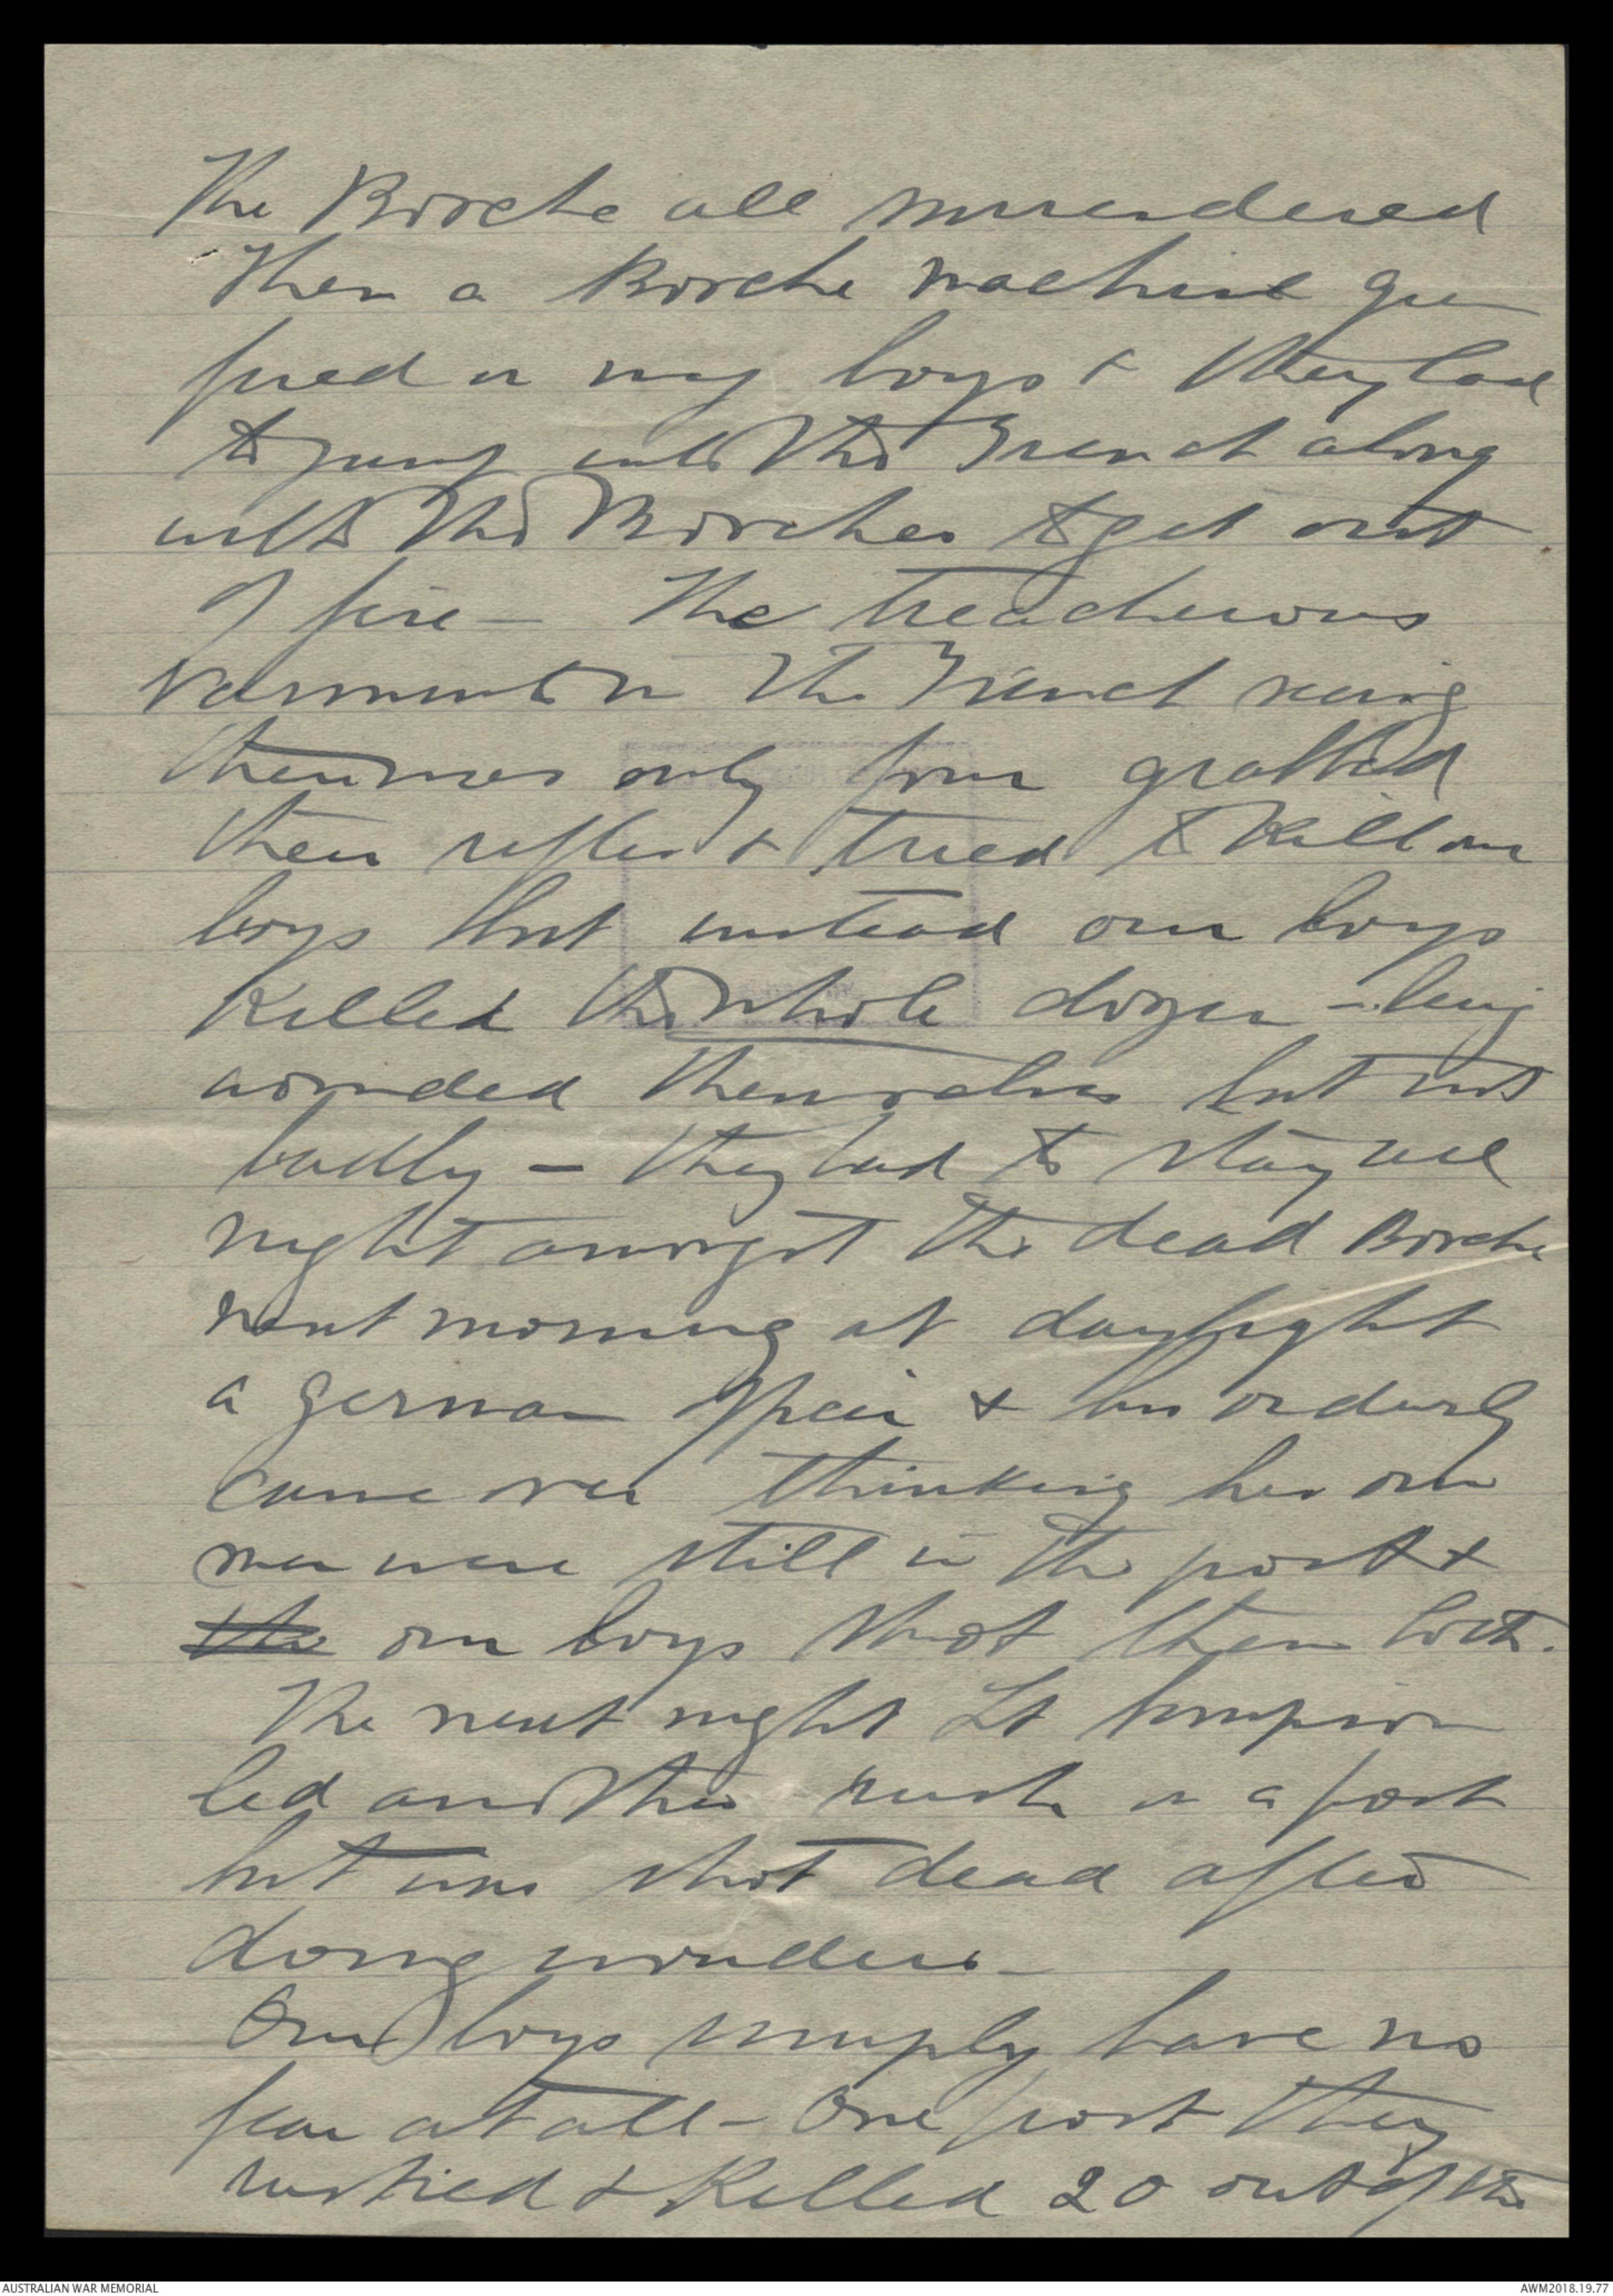 The Boche all surrendered
Then a Boche machine gun
fired on my boys & they had
to jump into the Trench along
with the Boches to get out
of fire - The treacherous
varmints in the Trench seeing
there was only four grabbed
their rifles & tried to kill our
boys but instead our boys
killed the whole dozen - being
wounded themselves but not
badly - they had to stay all
night amongst the dead Boche
next morning at daylight
a German officer & his orderly
came over thinking his own
men were still in the post &
the our boys shot them both.
The next night Lt
led another rush on a post
but was shot dead after
doing wonders -
Our boys simply have no
fear at all - One post they
rushed & killed 20 out of the
AUSTRALIAN WAR MEMORIAL
AWM2018.19.77